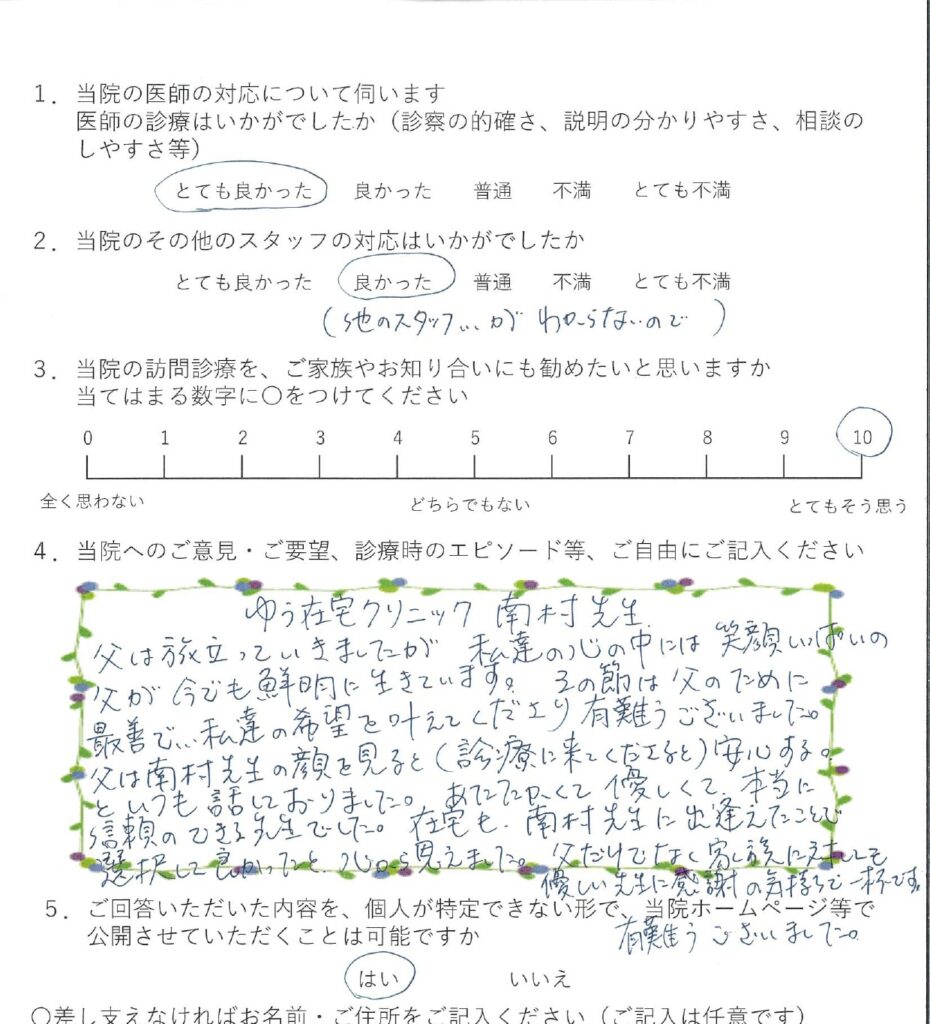 1．当院の医師の対応について伺います
医師の診療はいかがでしたか（診察の的確さ、説明の分かりやすさ、相談の
しやすさ等）
とても良かった　良かった　普通　不満　とても不満
2．当院のその他のスタッフの対応はいかがでしたか
とても良かった　良かった　普通　不満　とても不満
（他のスタッフ…が わからないので　）
3．当院の訪問診療を、ご家族やお知り合いにも勧めたいと思いますか
当てはまる数字に〇をつけてください
0 1 2 3 4 5 6 7 8 9 10
全く思わない　どちらでもない　とてもそう思う
4．当院へのご意見・ご要望、診療時のエピソード等、ご自由にご記入ください
ゆう在宅クリニック 南村先生
父は旅立っていきましたが 私達の心の中には 笑顔いっぱいの
父が 今でも鮮明に生きています。 その節は 父のために
最善で…私達の希望を叶えてくださり 有難うございました。
父は南村先生の顔を見ると（診療に来てくださると）安心する。
といつも話しておりました。 あたたかくて 優しくて、本当に
信頼のできる先生でした。 在宅も、南村先生に出逢えたことで
選択して良かったと、心から思えました。 父だけでなく 家族に対しても
優しい先生に感謝の気持ちで一杯です。
5．ご回答いただいた内容を、個人が特定できない形で、当院ホームページ等で
公開させていただくことは可能ですか
有難うございました。
はい　いいえ
〇差し支えなければお名前・ご住所をご記入ください（ご記入は任意です）